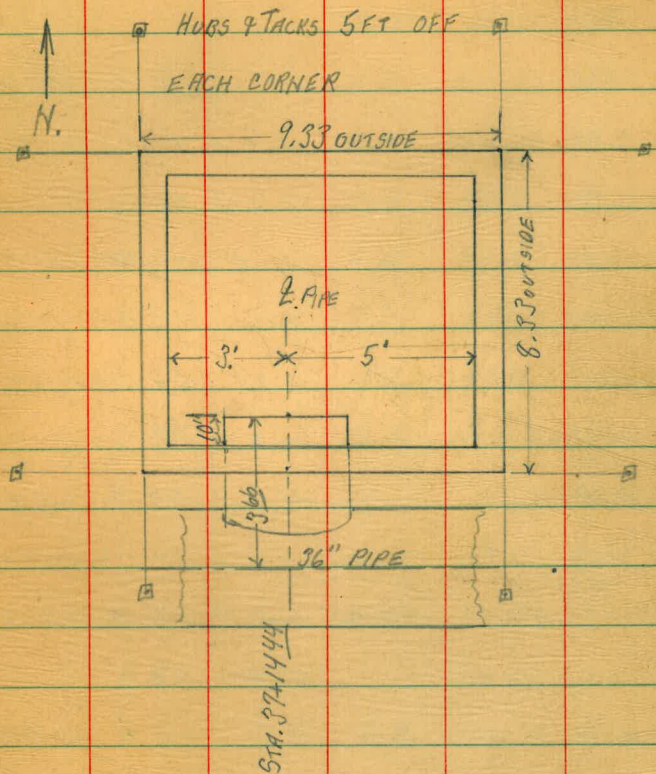 HUBS & TACKS 5FT OFF
EACH CORNER
N.
9.33 OUTSIDE
8.33 OUTSIDE
℄ PIPE
3' 5'
10"
3.66
36" PIPE
STA. 37+14.44